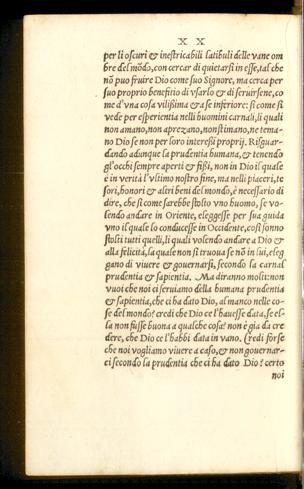 X X
per li oscuri & inestricabili latibuli delle vane om
bre del mõdo, con cercar di quietarsi in esse, tal che
nõ puo fruire Dio come suo Signore, ma cerca per
suo proprio benefitio di vsarlo & di seruirsene, co
me d'vna cosa vilissima & a se inferiore: si come si
vede per esperientia nelli huomini carnali, li quali
non amano, non aprezano, non stimano, ne tema-
no Dio se non per loro interessi proprij. Risguar-
dando adunque la prudentia humana, & tenendo
gl'occhi sempre aperti & fissi, non in Dio il quale
è in verità l'vltimo nostro fine, ma nelli piaceri, te
sori, honori & altri beni del mondo, è necessario di
dire, che si come sarebbe stolto vno huomo, se vo-
lendo andare in Oriente, eleggesse per sua guida
vno il quale lo conducesse in Occidente, così sonno
stolti tutti quelli, li quali volendo andare a Dio &
alla felicità, la quale non si truoua se nõ in lui, eleg
gano di viuere & gouernarsi, secondo la carnal
prudentia & sapientia. Ma diranno molti: non
vuoi che noi ci seruiamo della humana prudentia
& sapientia, che ci ha dato Dio, al manco nelle co-
se del mondo? credi che Dio ce l'hauesse data, se el-
la non fusse buona a qualche cosa? non è gia da cre
dere, che Dio ce l'habbi data in vano. Credi forse
che noi vogliamo viuere a caso, & non gouernar-
ci secondo la prudentia che ci ha dato Dio? certo
noi